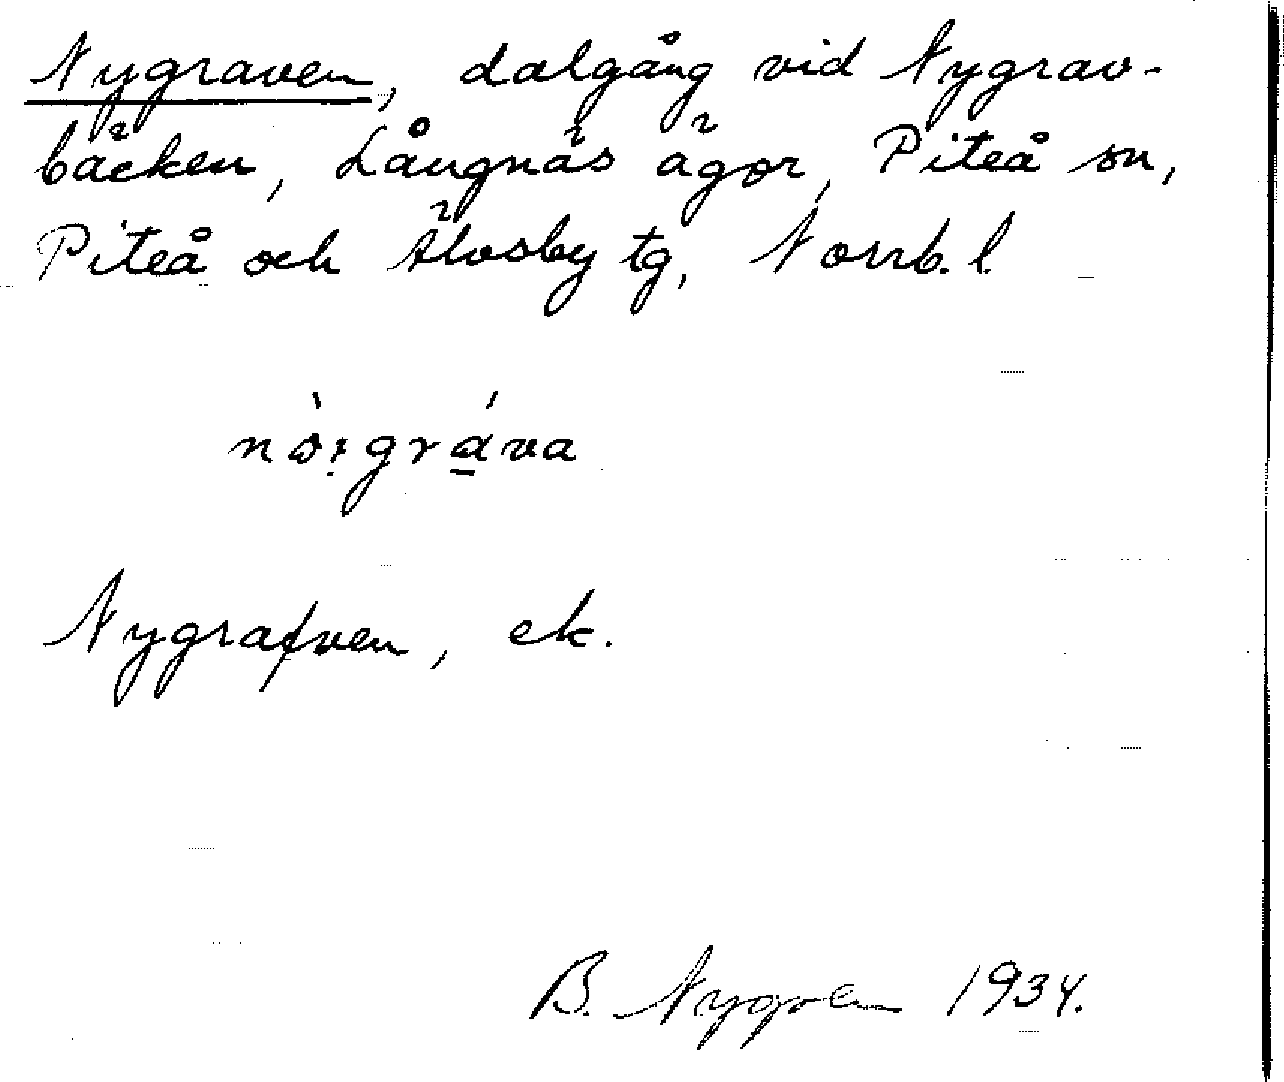 Nygraven, dalgång vid Nygrav-
bäcken, Långnäs ägor, Piteå sn,
Piteå och Älvsby tg, Norrb. l.
nò:gráva
Nygrafven, ek.
B. Nygren 1934.